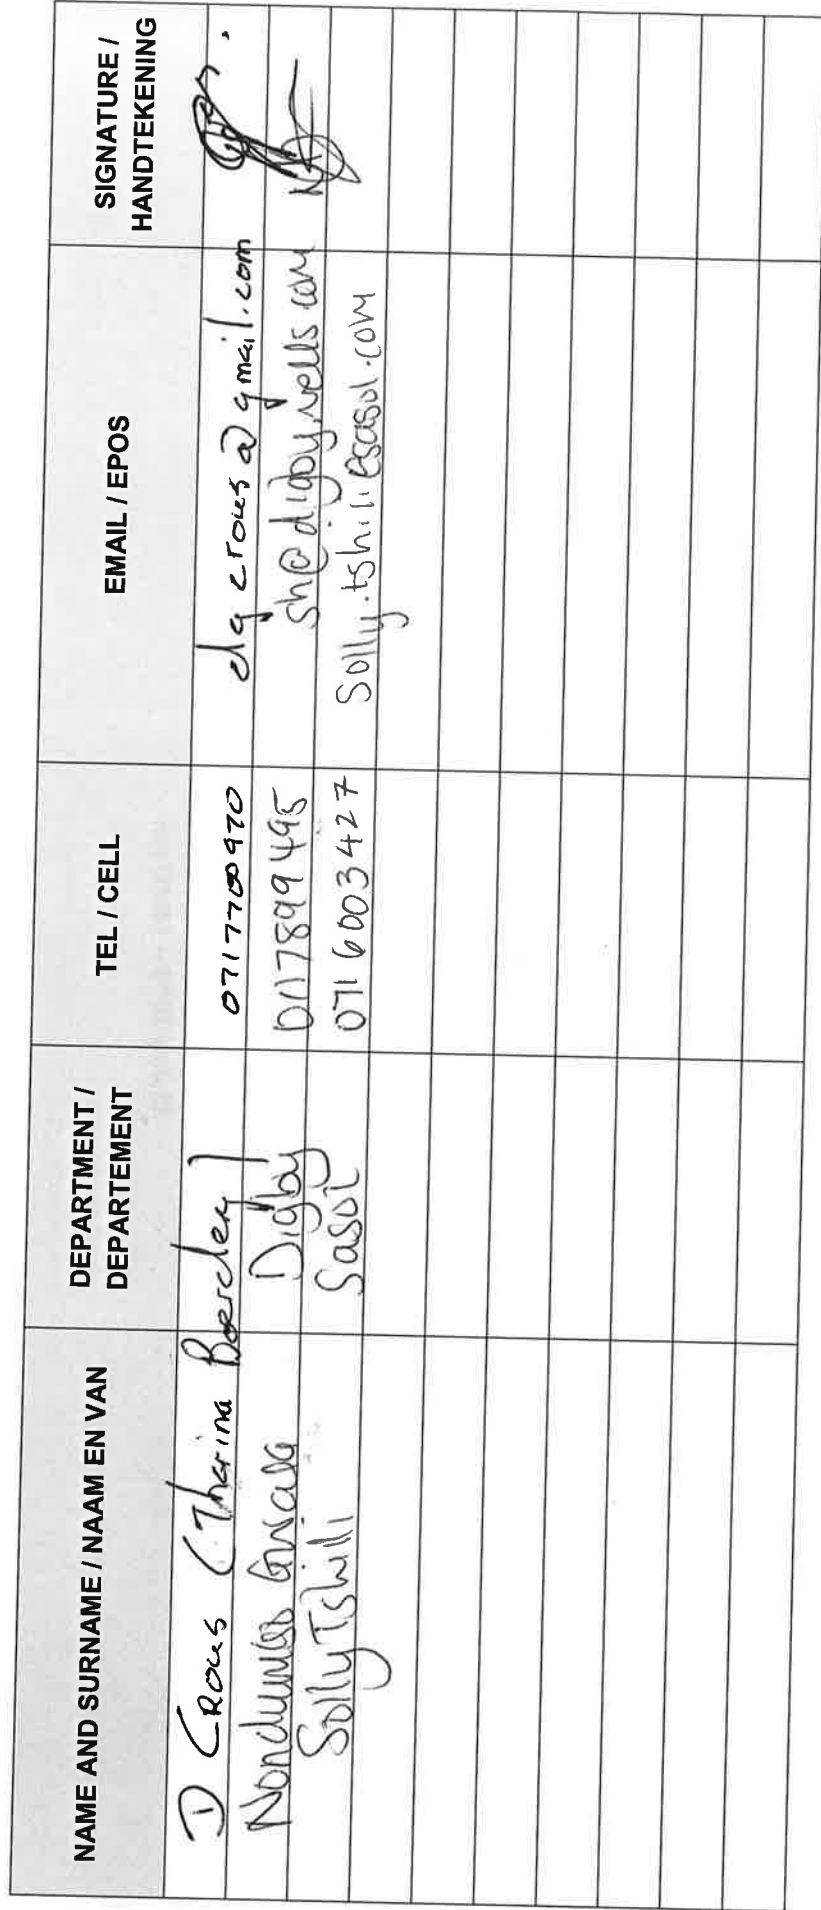 NAME AND SURNAME / NAAM EN VAN DEPARTMENT / DEPARTEMENT TEL / CELL EMAIL / EPOS SIGNATURE / HANDTEKENING
D Crous (Tharina Boerdery) dgcrous@gmail.com
Digby 0117899495 sh@digbywells.com
Solly Tshilli Sasol 0716003427 Solly.tshili@sasol.com